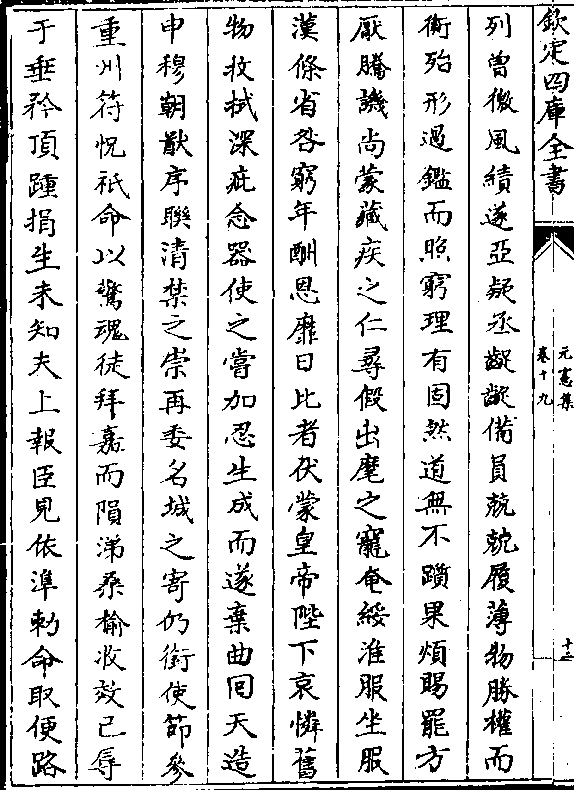 欽定四庫全書
元憲集
卷十九
十三
列曾微風績遂亞疑丞齪齪備員兢兢履薄物勝權而
衡殆形過鑑而照窮理有固然道無不躓果煩賜罷方
厭騰譏尚蒙藏疾之仁尋假出麾之寵奄綏淮服坐服
漢條省咎窮年酬恩靡日比者伏蒙皇帝陛下哀憐舊
物抆拭深疵念器使之嘗加忍生成而遂棄曲囘天造
申穆朝猷序聯清禁之崇再委名城之寄仍銜使節參
重州符怳祇命以驚魂徒拜嘉而隕涕桑榆收效已辱
于垂矜頂踵捐生未知夫上報臣見依準勅命取便路